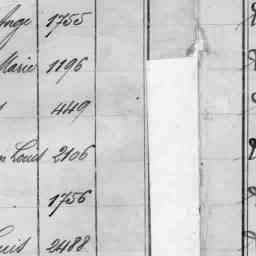 Ange 1755
Marie 1196
449
Louis 2106
1756
Louis 2488